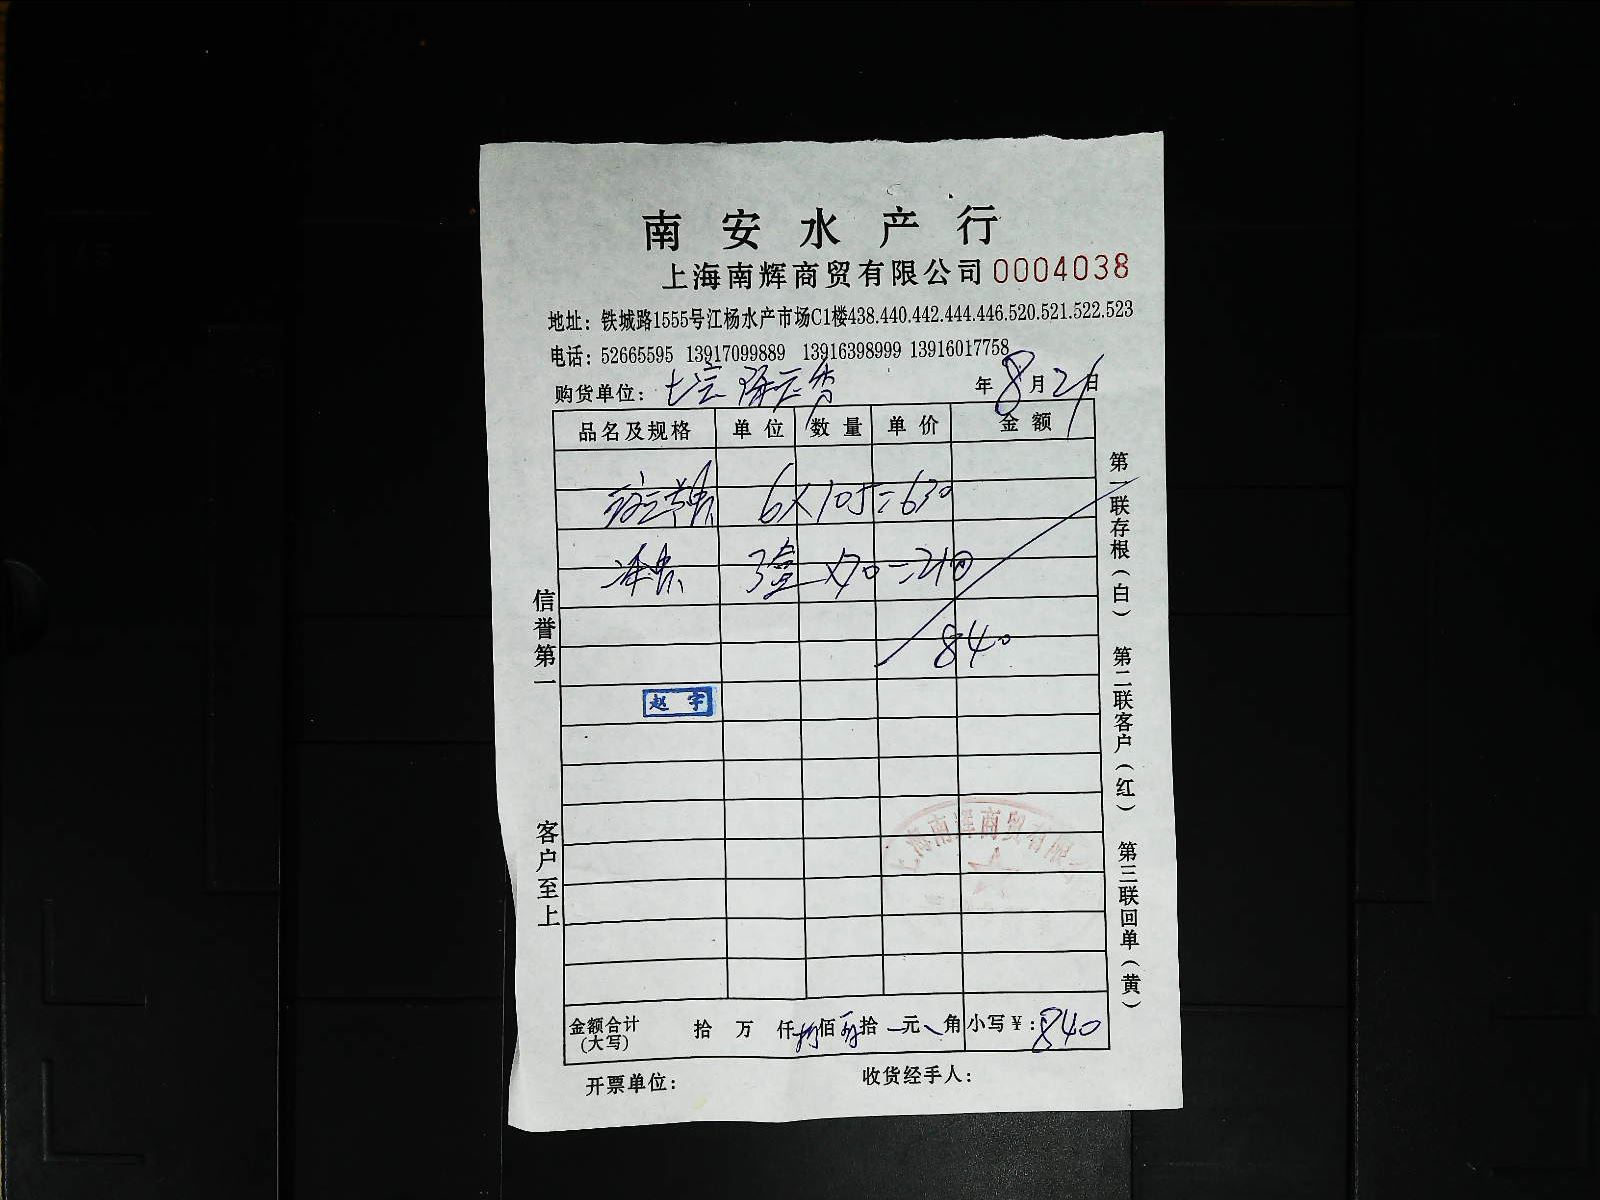 南安水产行
上海南辉商贸有限公司 0004038
地址：铁城路1555号江杨水产市场C1楼438.440.442.444.446.520.521.522.523
电话：52665595 13917099889 13916398999 13916017758
购货单位： 年 8月21日
品名及规格 单位 数量 单价 金额
6×105=630
3盒×70=210
840
赵宇
上海南辉商贸有限
金额合计(大写) 拾 万 仟 佰 拾 元 角 小写￥：840
开票单位： 收货经手人：
信誉第一 客户至上
第一联存根(白) 第二联客户(红) 第三联回单(黄)